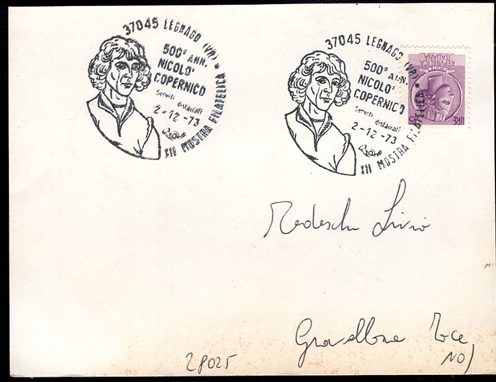 37045 LEGNAGO (VR) *
500° ANN.
NICOLO'
COPERNICO
Servizi distaccati
2-12-73
XII MOSTRA FILATELICA
37045 LEGNAGO (VR) *
500° ANN.
NICOLO'
COPERNICO
Servizi distaccati
2-12-73
XII MOSTRA FILATELICA
Tedeschi Livio
28025
Gravellona Toce
NO)